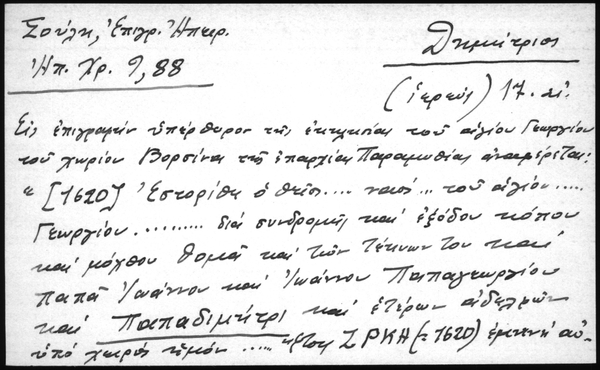 Σούλη, Ἐπιγρ. Ἠπειρ.
Ἠπ. Χρ. 9, 88
Δημήτριος
(ἱερεύς) 17. αἰ.
Εἰς ἐπιγραφὴν ὑπέρθυρον τῆς ἐκκλησίας τοῦ ἁγίου Γεωργίου
τοῦ χωρίου Βορσίνα τῆς ἐπαρχίας Παραμυθίας ἀναφέρεται:
"[1620] Ἐστορίθη ὁ θεῖο.... ναός... τοῦ ἁγίου.....
Γεωργίου.......... διά συνδρομῆς καί ἐξόδου κόπου
καί μόχθου Θομᾶ καί τῶν τέκνων του καί
παπᾶ Ἰωάννου καί Ἰωάννου Παπαγεωργίου
καί Παπαδιμήτρι καί ἑτέρων ἀδελφῶν
ὑπό χειρός ἐμόν ..... ἔτος ΖΡΚΗ (=1620)